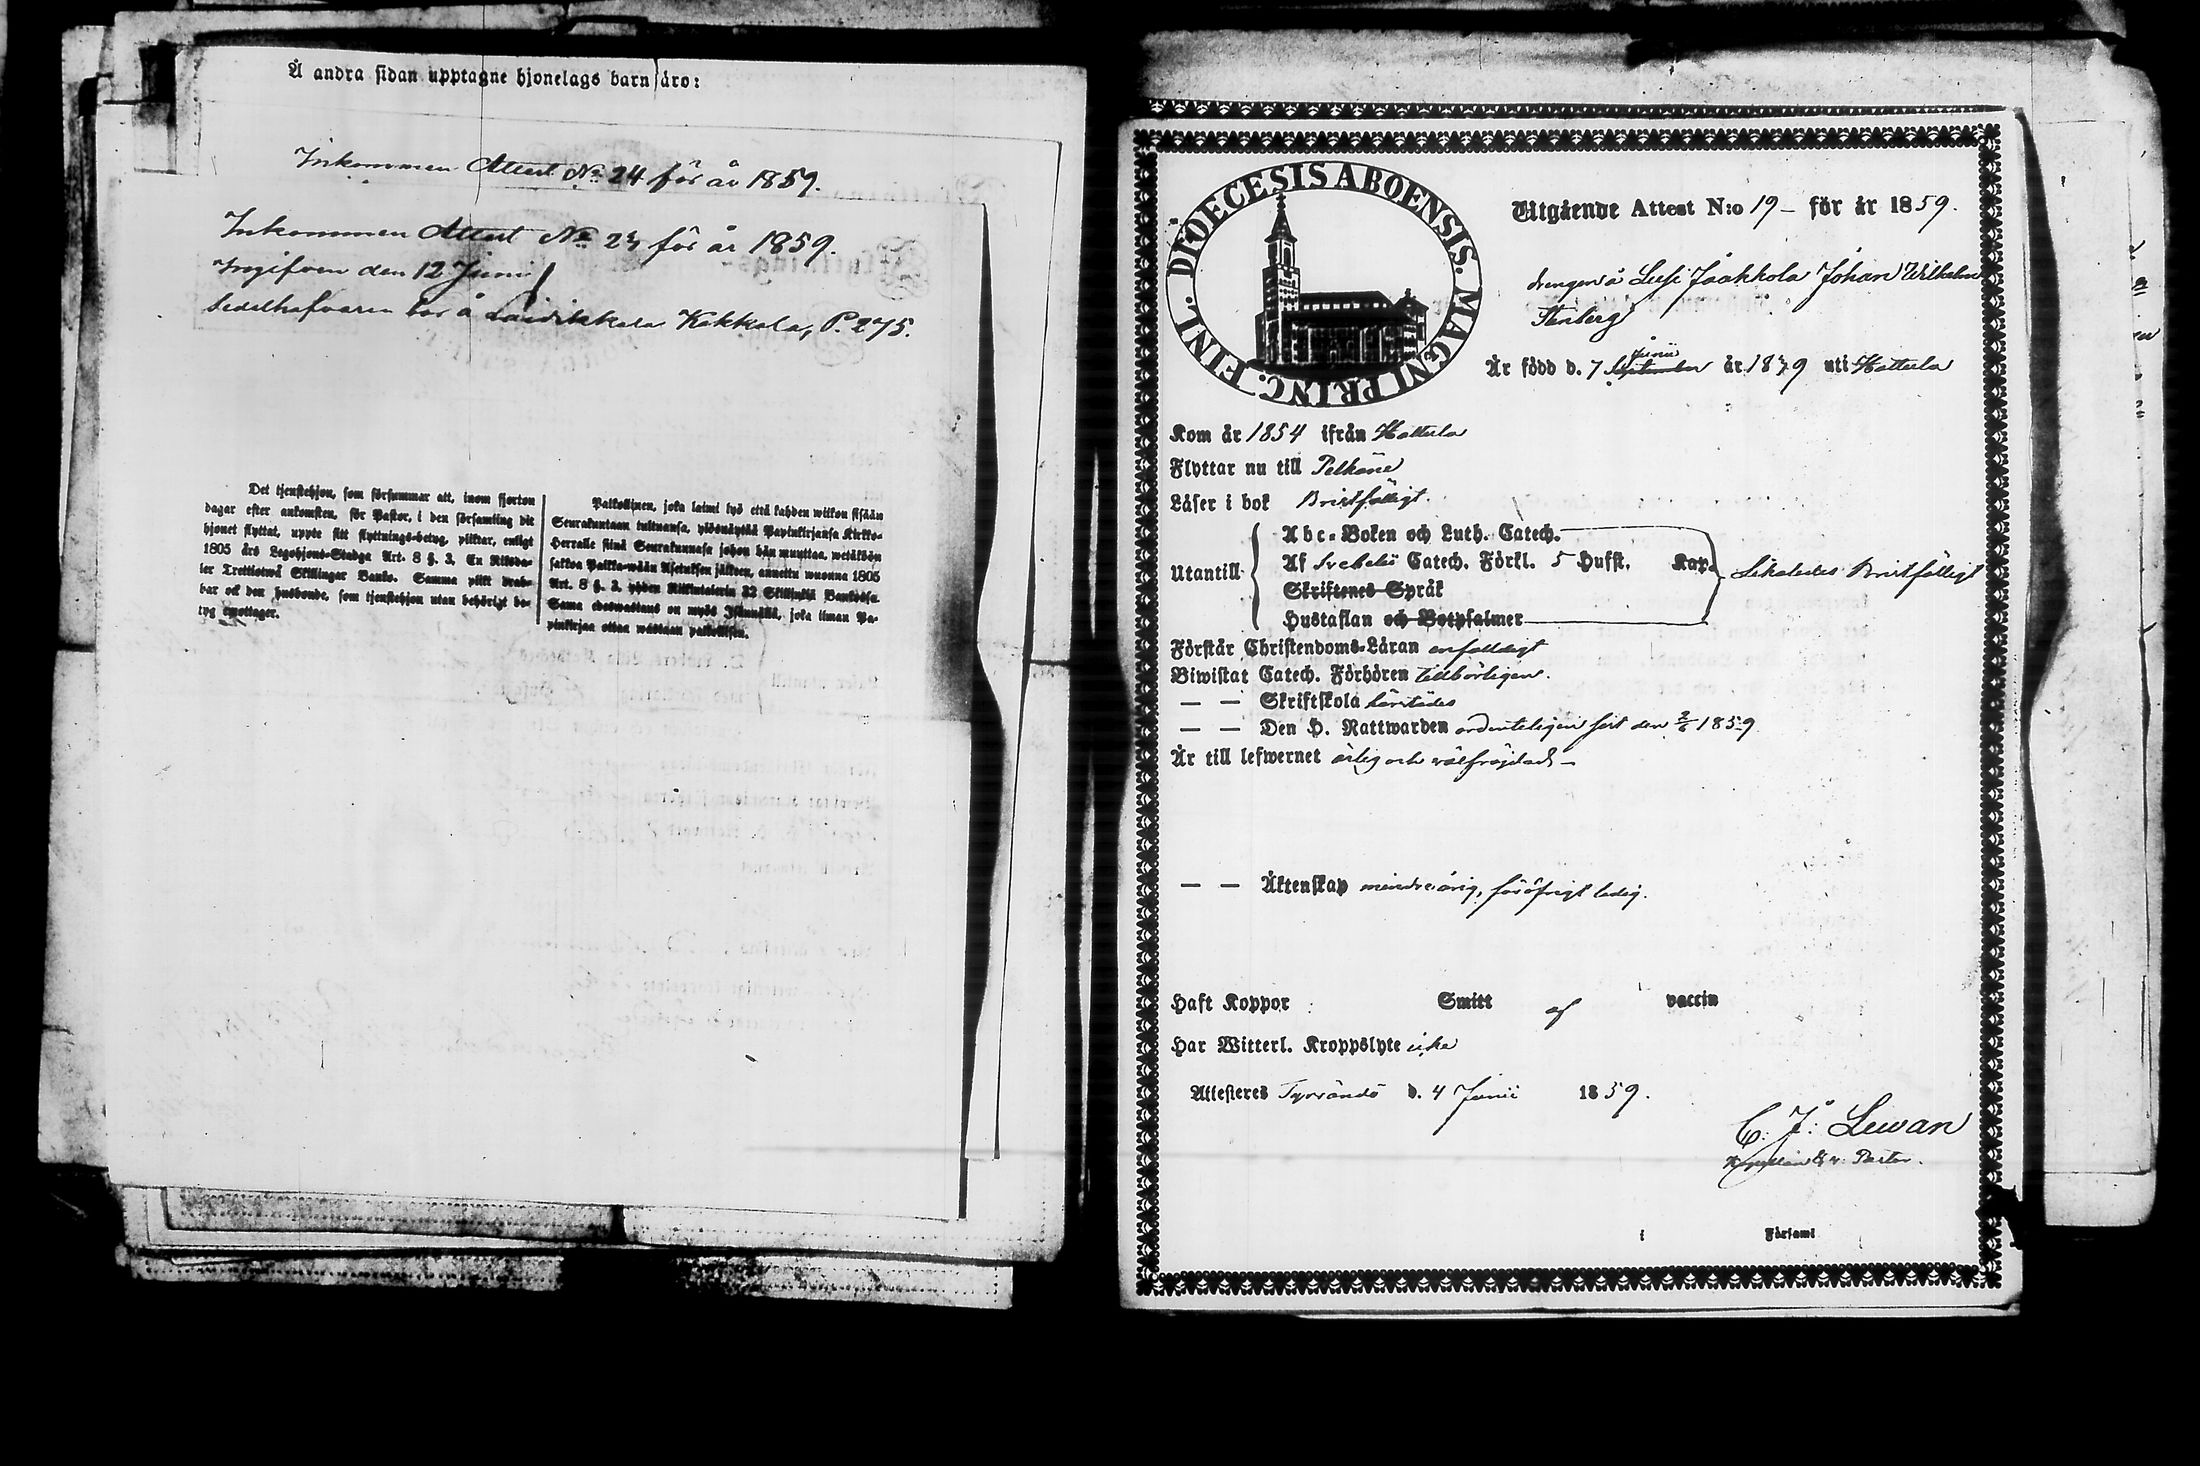 Å andra sidan upptagne hjonelags barn äro:
Inkommen Attest No 24 för år 1859.
Inkommen Attest No 27 för år 1859.
Ingifven den 12 Junii
Sedelhafvaren bor å Laidikkala Kokkola, P. 275.
Det tjenstehjon, som försummar att, inom fjorton
dagar efter ankomsten, för Pastor, i den församling dit
hjonet flyttat, uppte sitt flyttnings-betyg, pliktar, enligt
1805 års Legohjons-Stadga Art. 8 §. 3, En Riksda-
ler Trettiotwå Skillingar Banko. Samma plikt drab-
bar ock den husbonde, som tjenstehjon utan behörigt be-
tyg emottager.
Palkollinen, joka laimi lyö että kahden wiikon sisään
Seurakuntaan tultuansa, ylösnäyttää Papinkirjansa Kirkko-
Herralle siinä Seurakunnasa johon hän muuttaa, wetäköön
sakkoa Palkka-wään Asetuksen jälkeen, annettu wuonna 1805
Art. 8 §. 3. yhden Riikintalerin 32 Skillinkiä Bankossa.
Sama edeswastaus on myös Isännällä, joka ilman Pa-
pinkirjaa ottaa wastaan palkollisen.
DIOECESIS ABOENSIS. MAGNI PRINC. FINL.
Utgående Attest N:o 19 – för år 1859.
drengen å Susi Jaakkola Johan Wilhelm
Stenberg
Junii
Är född d. 7 September år 1839 uti Hattula
Kom år 1854 ifrån Hattula
Flyttar nu till Pelkäne
Läser i bok Bristfälligt.
Utantill
Abc-Boken och Luth. Catech.
Af Svebelii Catech. Förkl. 5 Hufst. Kap.
Skriftenes Språk
Hustaflan och Botpsalmer
Likaledes Bristfälligt
Förstår Christendoms-Läran enfaldigt
Biwistat Catech. Förhören tillbörligen.
— — Skriftskola
— — Den H. Nattwarden ordenteligen sist den 2/6 1859
Är till lefwernet ärlig och välfräjdad –
— — Äktenskap minderårig, föröfrigt ledig.
Haft Koppor Smitt af vaccin
Har Witterl. Kroppslyte icke
Attesteres Tyrväntö d. 4 Junii 1859.
C. J. Lewan
Kapellan & v. Pastor.
i Församl